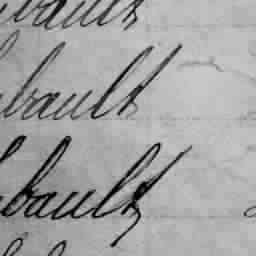 bault
bault
bault